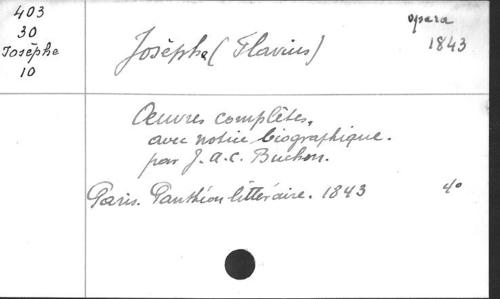 403
30
Josèphe
10
Josèphe (Flavius)
opera
1843
Œuvres complètes,
avec notice biographique.
par J.A.C. Buchon.
Paris. Panthéon littéraire. 1843
4°